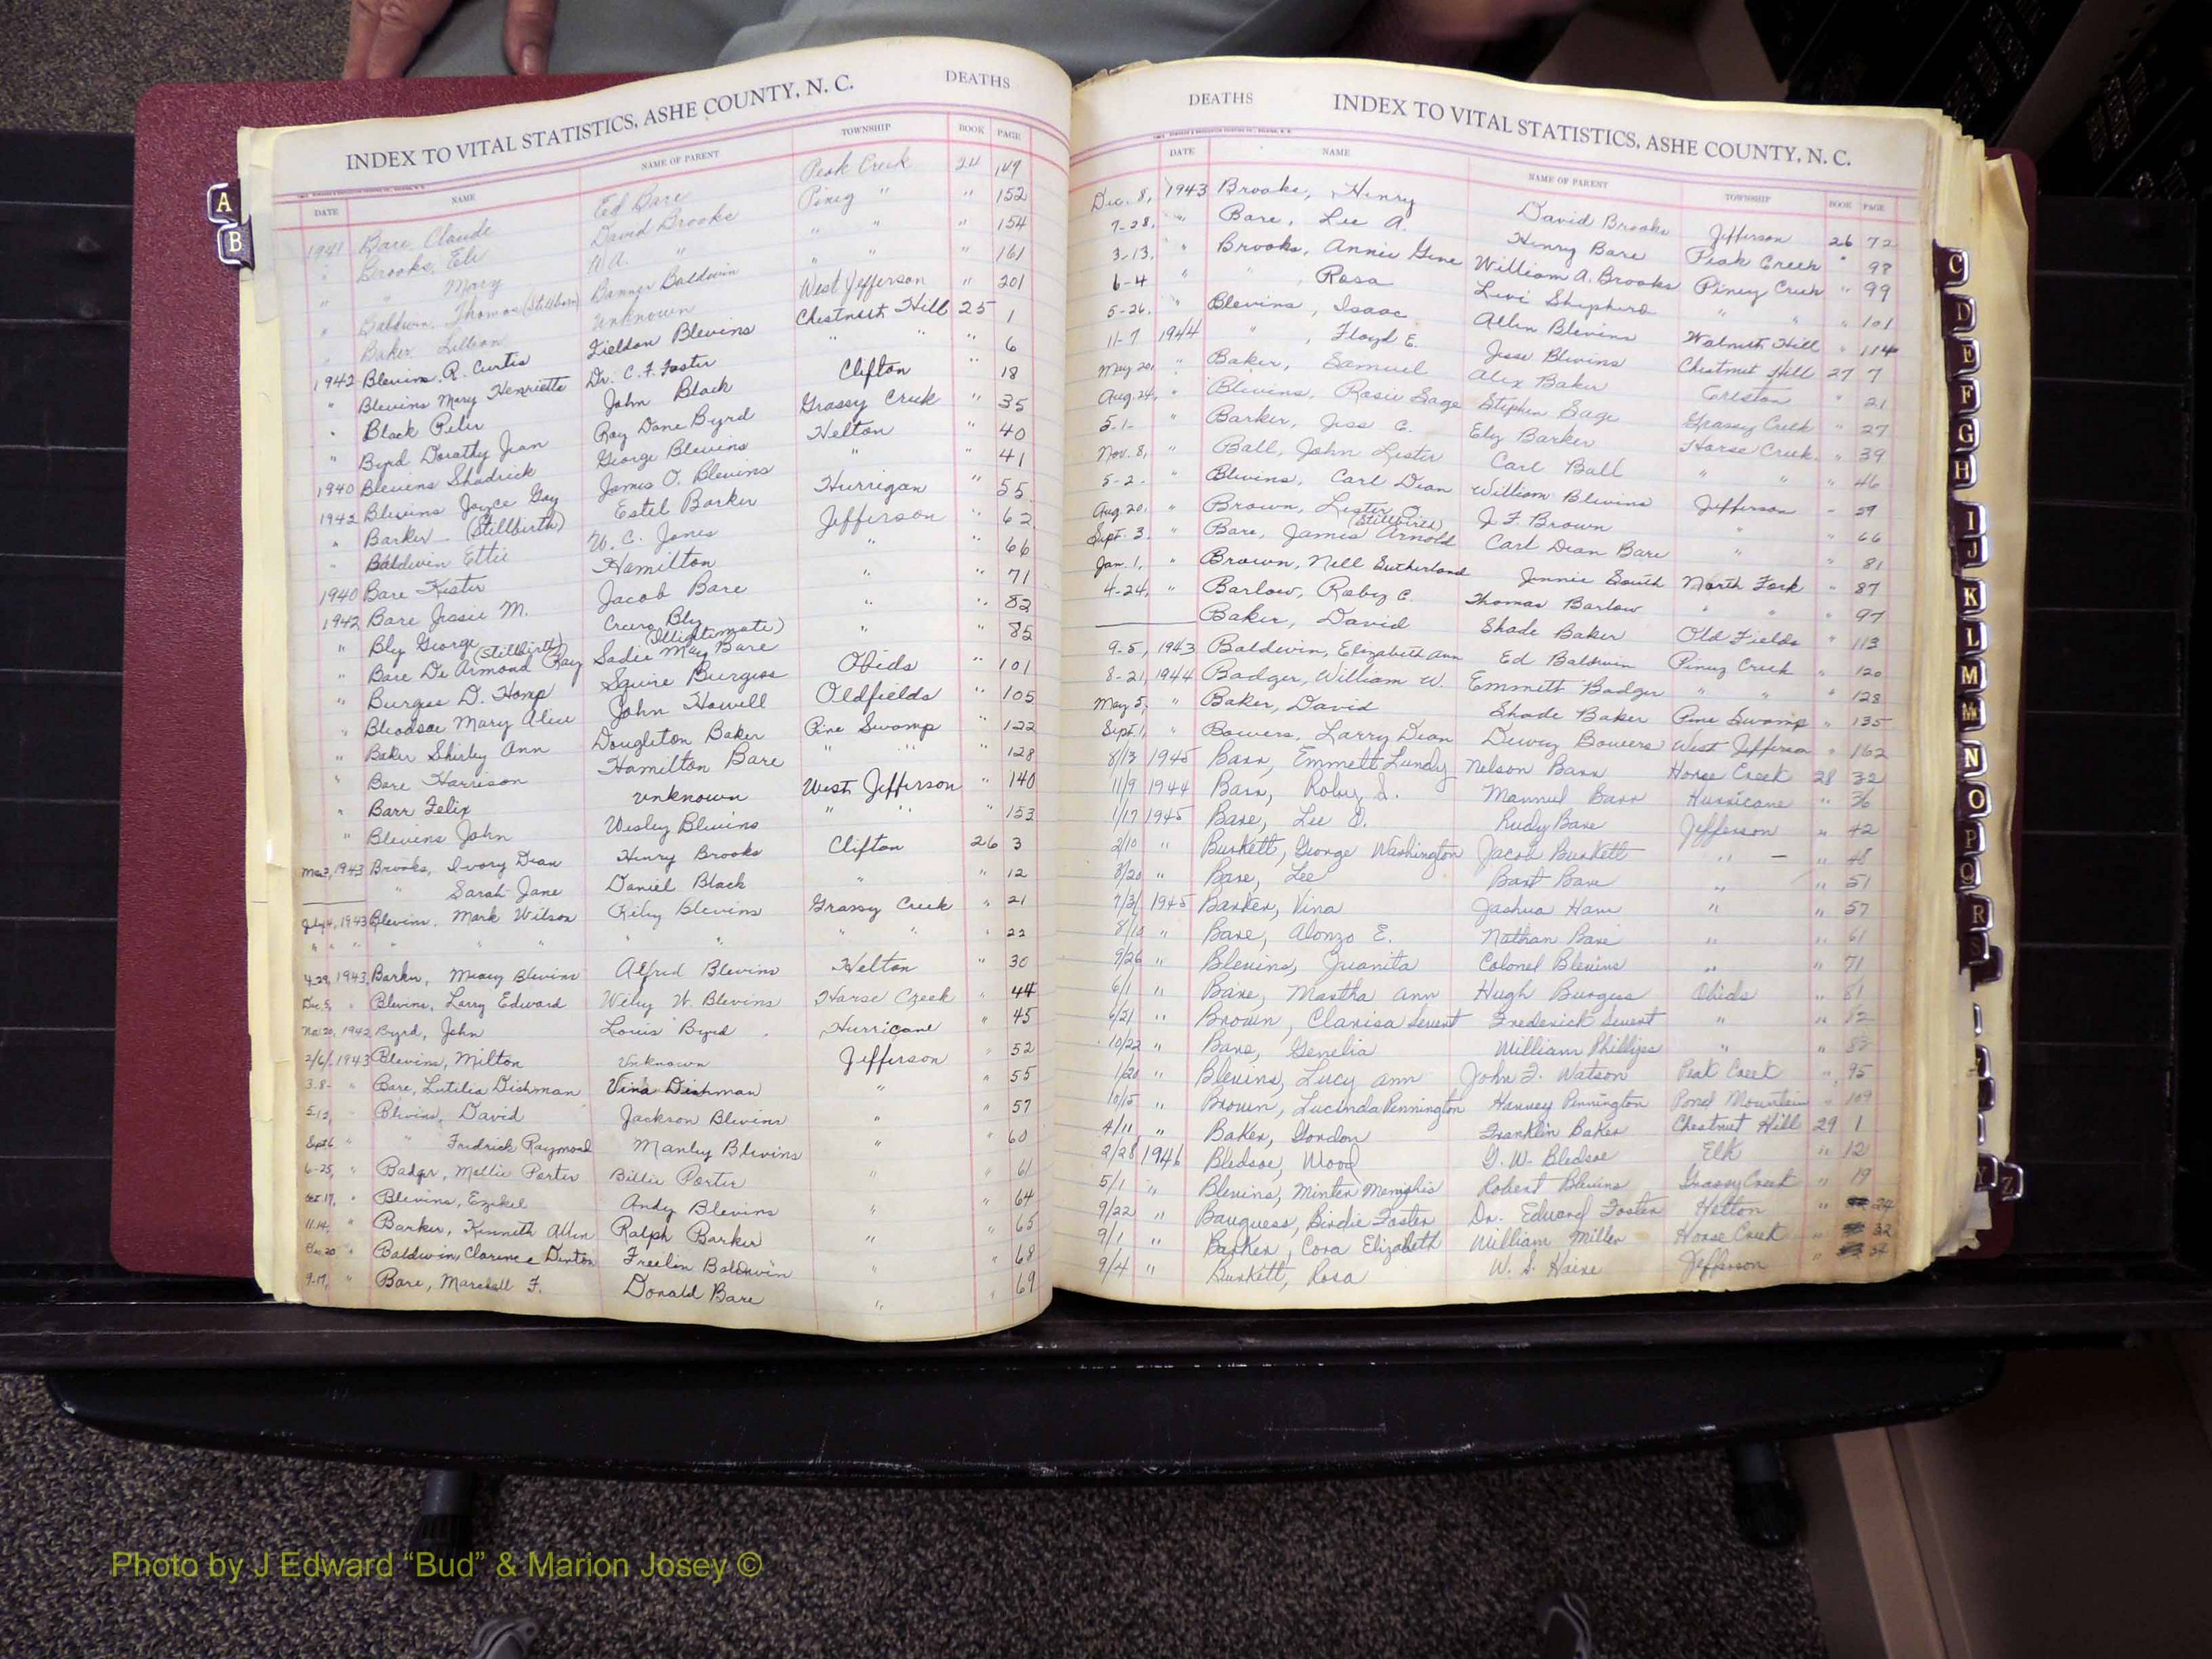 INDEX TO VITAL STATISTICS, ASHE COUNTY, N. C. DEATHS
DATE NAME NAME OF PARENT TOWNSHIP BOOK PAGE
1941 Bare, Claude Ed Bare Peak Creek 24 149
" Brooks, Eli David Brooks Piney " " 152
" " Mary W.A. " " " " 154
" Baldwin, Thomas (Stillborn) Banner Baldwin " " " 161
" Baker, Lillian Unknown West Jefferson " 201
1942 Blevins, R. Curtis Fieldon Blevins Chestnut Hill 25 1
" Blevins Mary Henriette Dr. C. F. Foster " " " 6
" Black Peter John Black Clifton " 18
" Byrd Dorathy Jean Roy Dane Byrd Grassy Creek " 35
1940 Blevens Shadrick George Blevins Helton " 40
1942 Blevins Joyce Gay James O. Blevins " " 41
" Barker — (Stillbirth) Estel Barker Hurrigan " 55
" Baldwin Ettie W. C. Jones Jefferson " 62
1940 Bare Kester Hamilton " " 66
1942 Bare Jessie M. Jacob Bare " " 71
" Bly George (Stillbirth) Cicero Bly " " 82
" Bare De Armond Ray Sadie May Bare (Illigitimate) " " 85
" Burgess D. Homp Squire Burgess Obids " 101
" Bloodsoe Mary Alice John Howell Oldfields " 105
" Baker Shirley Ann Doughton Baker Pine Swamp " 122
" Bare Harrison Hamilton Bare " " " 128
" Barr Felix Unknown West Jefferson " 140
" Blevens John Wesley Blevins " " " 153
Mar 3, 1943 Brooks, Ivory Dean Henry Brooks Clifton 26 3
" Sarah Jane Daniel Black " " 12
July 4, 1943 Blevins, Mark Wilson Riley Blevins Grassy Creek " 21
" " " " " " " " " " " 22
4-29, 1943 Barker, Micey Blevins Alfred Blevins Helton " 30
Dec. 5, " Blevins, Larry Edward Wiley W. Blevins Horse Creek " 44
Nov. 20, 1942 Byrd, John Louis Byrd Hurricane " 45
2/6/- 1943 Blevins, Milton Unknown Jefferson " 52
3-8- " Bare, Lutilia Dishman Vina Dishman " " 55
5-12, " Blevins, David Jackson Blevins " " 57
Sept 6 " " Fredrick Raymond Manley Blevins " " 60
6-25, " Badger, Mollie Porter Billie Porter " " 61
Oct. 17, " Blevins, Ezekel Andy Blevins " " 64
11-14, " Barker, Kenneth Allen Ralph Barker " " 65
Dec. 20 " Baldwin, Clarence Denton Freelin Baldwin " " 68
9-17, " Bare, Marshall F. Donald Bare " " 69
DEATHS INDEX TO VITAL STATISTICS, ASHE COUNTY, N. C.
DATE NAME NAME OF PARENT TOWNSHIP BOOK PAGE
Dec. 8, 1943 Brooks, Henry David Brooks Jefferson 26 72
7-28, " Bare, Lee A. Henry Bare Peak Creek " 98
3-13, " Brooks, Annie Gene William A. Brooks Piney Creek " 99
6-4 " " , Rosa Levi Shepherd " " " 101
5-26, " Blevins, Isaac Allen Blevins Walnut Hill " 114
11-7 1944 " , Floyd E. Jesse Blevins Chestnut Hill 27 7
May 20, " Baker, Samuel Alex Baker Creston " 21
Aug. 24, " Blevins, Rosie Sage Stephen Sage Grassy Creek " 27
5-1- Barker, Jess C. Ely Barker Horse Creek " 39
Nov. 8, " Ball, John Lester Carl Ball " " " 46
5-2. " Blevins, Carl Dean William Blevins Jefferson " 59
Aug. 20, " Brown, Lester O. J. F. Brown " " 66
Sept. 3, " Bare, James Arnold (Stillbirth) Carl Dean Bare " " 81
Jan. 1, " Brown, Nell Sutherland Jennie South North Fork " 87
4-24, " Barlow, Roby C. Thomas Barlow " " " 97
Baker, David Shade Baker Old Fields " 113
9-5, 1943 Baldwin, Elizabeth Ann Ed Baldwin Piney Creek " 120
8-21, 1944 Badger, William W. Emmett Badger " " " 128
May 5, " Baker, David Shade Baker Pine Swamp " 135
Sept. 1, " Bowers, Larry Dean Dewey Bowers West Jefferson " 162
8/13 1945 Barr, Emmett Lundy Nelson Barr Horse Creek 28 32
11/9 1944 Barr, Roby S. Mannuel Barr Hurricane " 36
1/17 1945 Bare, Lee O. Rudy Bare Jefferson " 42
2/10 " Burkett, George Washington Jacob Burkett " — " 48
3/20 " Bare, Lee Bart Bare " " 51
7/3/ 1945 Barker, Vina Joshua Ham " " 57
8/10 " Bare, Alonzo E. Nathan Bare " " 61
9/26 " Blevins, Juanita Colonel Blevins " " 71
6/1 " Bare, Martha Ann Hugh Burgess Obids " 81
6/21 " Brown, Clarisa Severt Frederick Severt " " 82
10/22 " Bare, Genelia William Phillips " " 83
1/20 " Blevins, Lucy Ann John F. Watson Peak Creek " 95
10/15 " Brown, Lucinda Pennington Harvey Pennington Pond Mountain " 109
4/11 " Baker, Gordon Franklin Baker Chestnut Hill 29 1
2/28 1946 Bledsoe, Wood G. W. Bledsoe Elk " 12
5/1 " Blevins, Minter Memphis Robert Blevins Grassy Creek " 19
9/22 " Bauguess, Birdie Foster Dr. Edward Foster Helton " 24
9/1 " Barker, Cora Elizabeth William Miller Horse Creek " 32
9/4 " Burkett, Rosa W. S. Haire Jefferson "
A
B
C
D
E
F
G
H
I
J
K
L
M
Mc
N
O
P
Q
R
S
Y
Z
Photo by J Edward “Bud” & Marion Josey ©